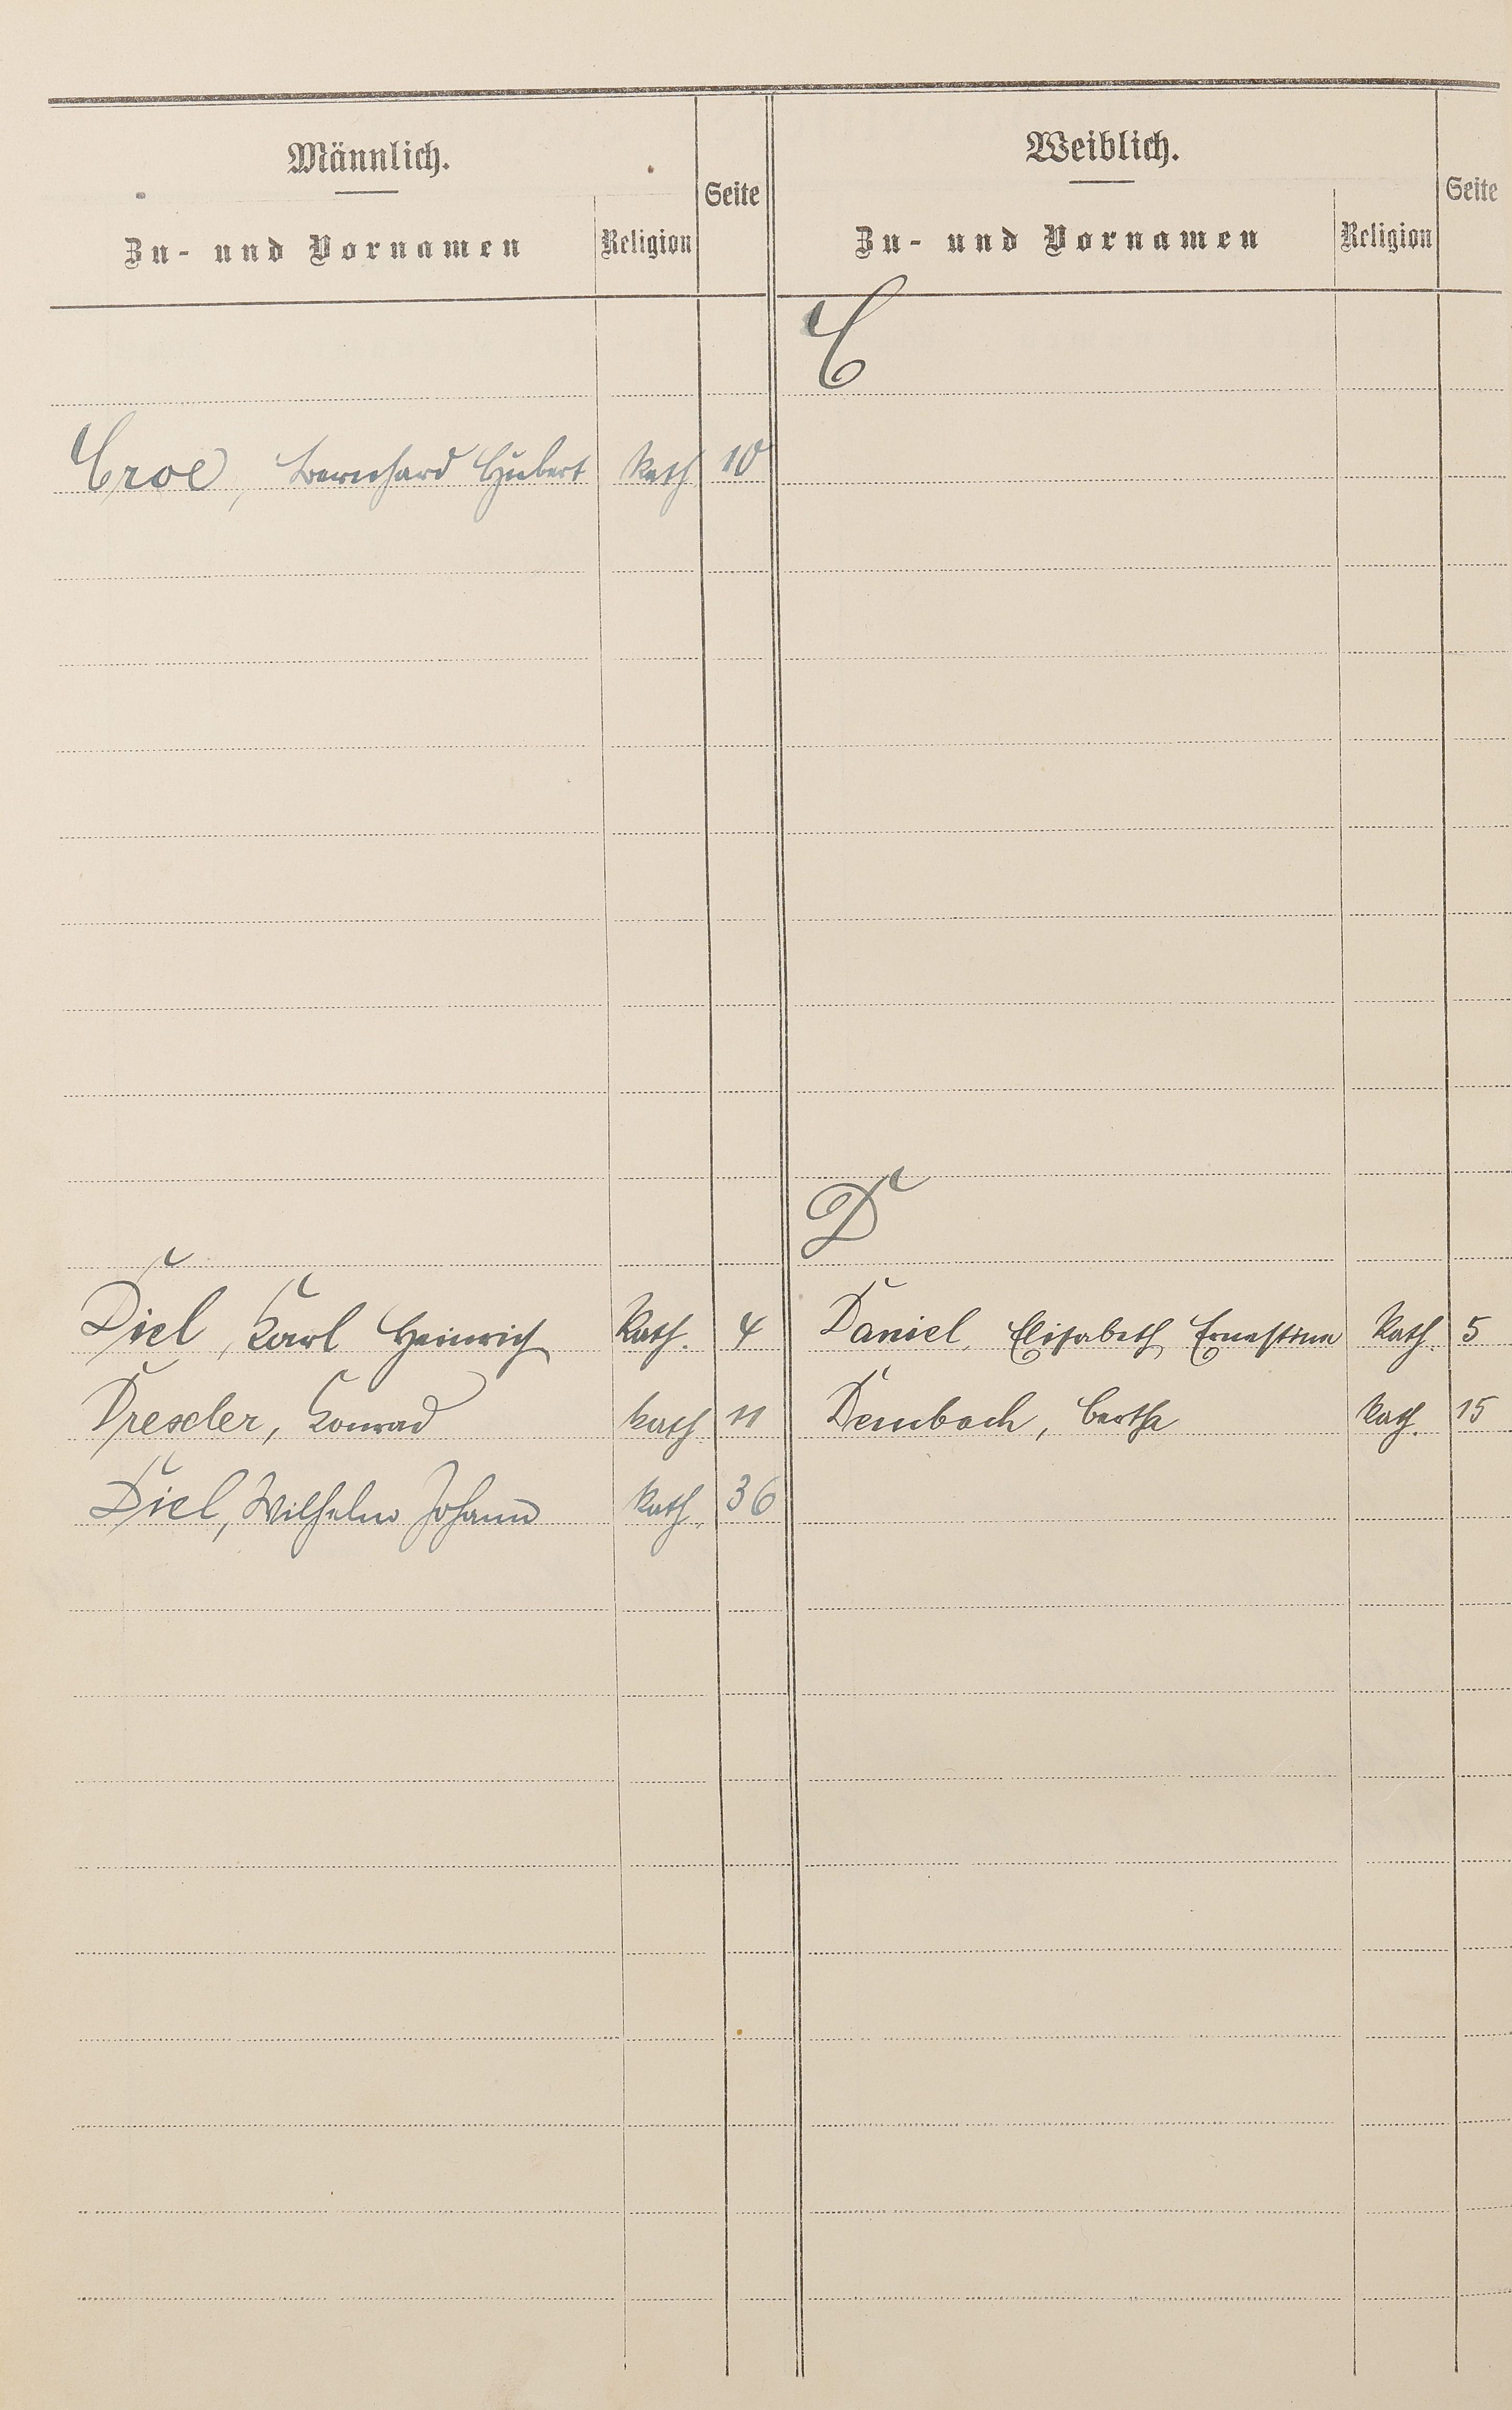 Männlich.
Zu- und Vornamen Religion Seite
Weiblich.
Zu- und Vornamen Religion Seite
C
Croe, Bernhard Hubert kath 10
D
Diel, Karl Heinrich Kath. 4
Daniel, Elisabeth Ernestine Kath. 5
Drescler, Konrad kath 11
Dembach, Bertha kath. 15
Diel, Wilhelm Johann kath. 36